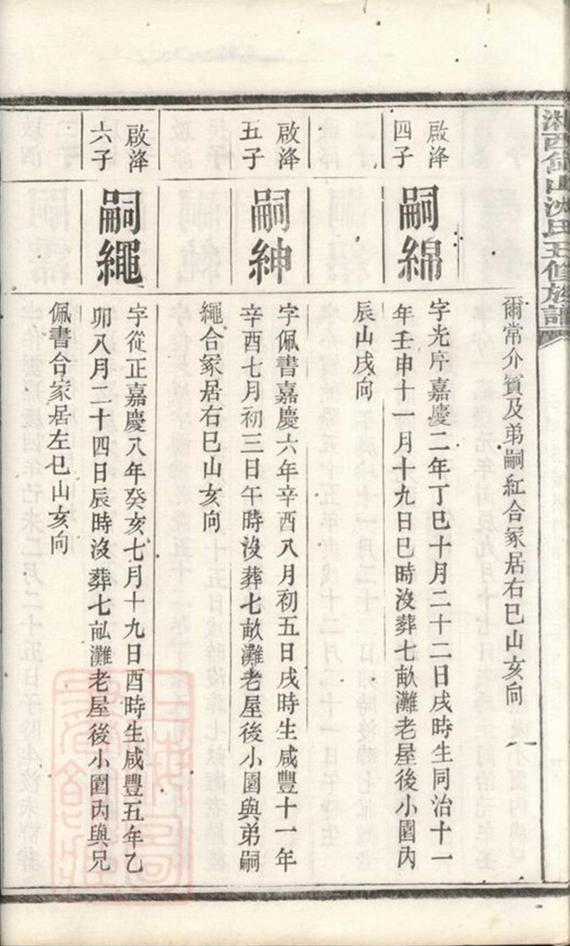 爾常介賓及弟嗣紅合冢居右巳山亥向
啟洚
四子
嗣綿
字光序嘉慶二年丁巳十月二十二日戌時生同治十一
年壬申十一月十九日巳時沒葬七畝灘老屋後小園內
辰山戌向
啟洚
五子
嗣紳
字佩書嘉慶六年辛酉八月初五日戌時生咸豐十一年
辛酉七月初三日午時沒葬七畝灘老屋後小園與弟嗣
繩合冢居右巳山亥向
啟洚
六子
嗣繩
字從正嘉慶八年癸亥七月十九日酉時生咸豐五年乙
卯八月二十四日辰時沒葬七畆灘老屋後小園內與兄
佩書合冢居左巳山亥向